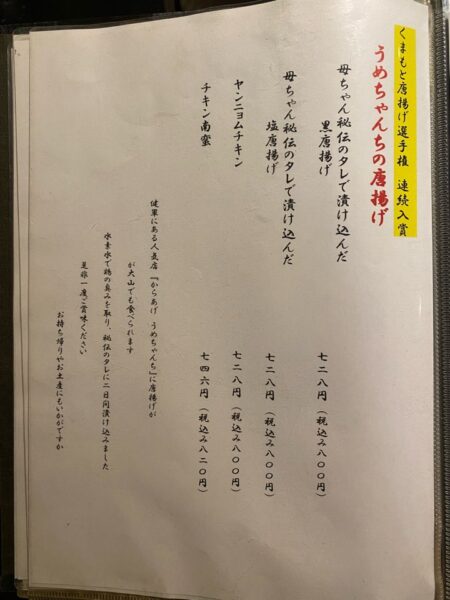 くまもと唐揚げ選手権 連続入賞
うめちゃんちの唐揚げ
母ちゃん秘伝のタレで漬け込んだ
黒唐揚げ 七二八円(税込み八〇〇円)
母ちゃん秘伝のタレで漬け込んだ
塩唐揚げ 七二八円(税込み八〇〇円)
ヤンニョムチキン 七二八円(税込み八〇〇円)
チキン南蛮 七四六円(税込み八二〇円)
健軍にある人気店『からあげ うめちゃんち』に唐揚げが
が大山でも食べられます
水素水で鶏の臭みを取り、秘伝のタレに二日間漬け込みました
是非一度ご賞味ください
お持ち帰りやお土産にもいかがですか